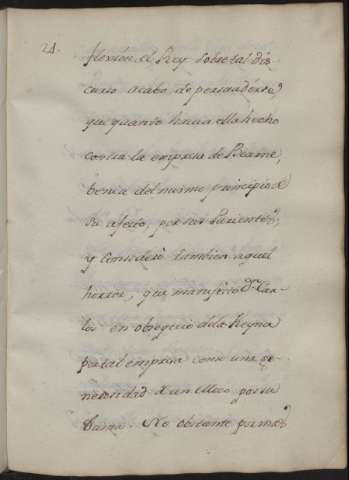 24.
flexión el Rey sobre tal dis
curso acabó de persuadirse,
que quanto havia ella hecho
contra la empresa de Bearne,
benia del mismo principio de
su afecto, por sus Parientes;
y consideró tambien aquel
horror, que manifestó Dn. Car-
los en obsequio de la Reyna
por tal empresa como una ge-
nerosidad de un Mozo por su
Dama. No obstante por mas